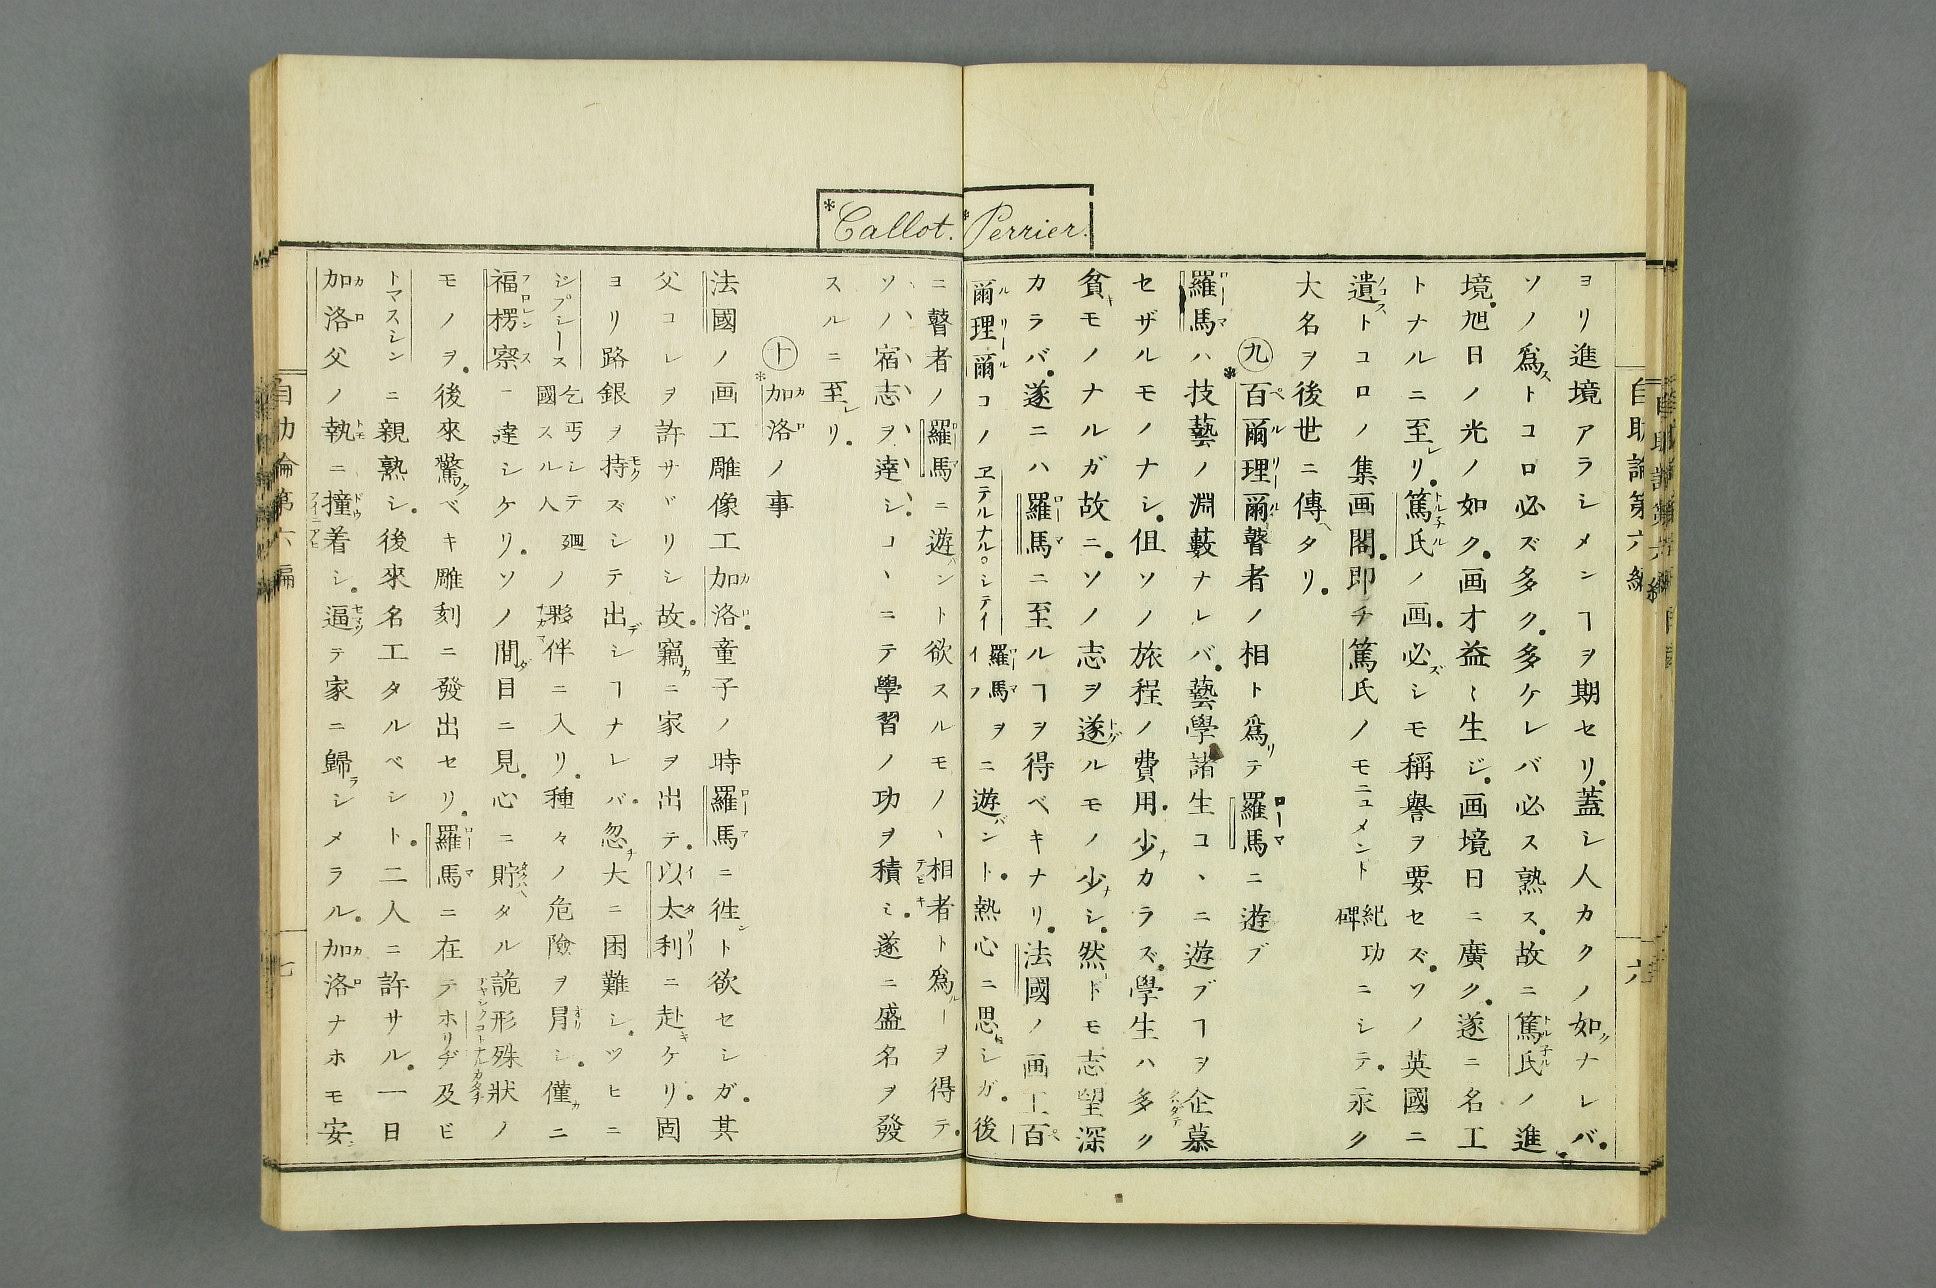 *Perrier.
ヨリ進境アラシメンヿヲ期セリ。蓋シ人カクノ如クナレバ。
ソノ爲ストコロ必ズ多ク。多ケレバ必ス熟ス。故ニ篤氏ノ進
境。旭日ノ光ノ如ク。画才益〻生ジ。画境日ニ廣ク。遂ニ名工
トナルニ至レリ。篤氏ノ画。必ズシモ稱譽ヲ要セズ。ソノ英國ニ
遺ストコロノ集画閣。即チ篤氏ノモニユメント紀功碑ニシテ。永ク
大名ヲ後世ニ傳ヘタリ。
九 *百爾理爾瞽者ノ相ト爲リテ羅馬ニ遊ブ
羅馬ハ技藝ノ淵藪ナレバ。藝學諸生コヽニ遊ブヿヲ企慕
セザルモノナシ。但ソノ旅程ノ費用。少ナカラズ。學生ハ多ク
貧キモノナルガ故ニ。ソノ志ヲ遂グルモノ少ナシ。然ドモ志望深
カラバ。遂ニハ羅馬ニ至ルヿヲ得ベキナリ。法國ノ画工百
爾理爾コノヱテルナル。シテイ羅馬ヲイフニ遊バント。熱心ニ思ヒシガ。後
自助論第六編
六
*Callot.
ニ瞽者ノ羅馬ニ遊バント欲スルモノヽ相者ト爲ルヿヲ得テ。
ソノ宿志ヲ達シ。コヽニテ學習ノ功ヲ積ミ。遂ニ盛名ヲ發
スルニ至レリ。
十 *加洛ノ事
法國ノ画工雕像工加洛。童子ノ時羅馬ニ徃ント欲セシガ。其
父コレヲ許サヾリシ故。竊カニ家ヲ出テ。以太利ニ赴キケリ。固
ヨリ路銀ヲ持モクズシテ出デシヿナレバ。忽チ大ニ困難シ。ツヒニ
ジプシース乞丐シテ廻國スル人ノ夥伴ニ入リ。種々ノ危險ヲ冒シ。僅カニ
福楞察ニ達シケリ。ソノ間ダ目ニ見。心ニ貯タル詭形殊狀ノ
モノヲ。後來驚クベキ雕刻ニ發出セリ。羅馬ニ在テホリヂ及ビ
トマスシンニ親熟シ。後來名工タルベシト。二人ニ許サル。一日
加洛父ノ執ニ撞着シ。逼テ家ニ歸ラシメラル。加洛ナホモ安
自助論第六編
七